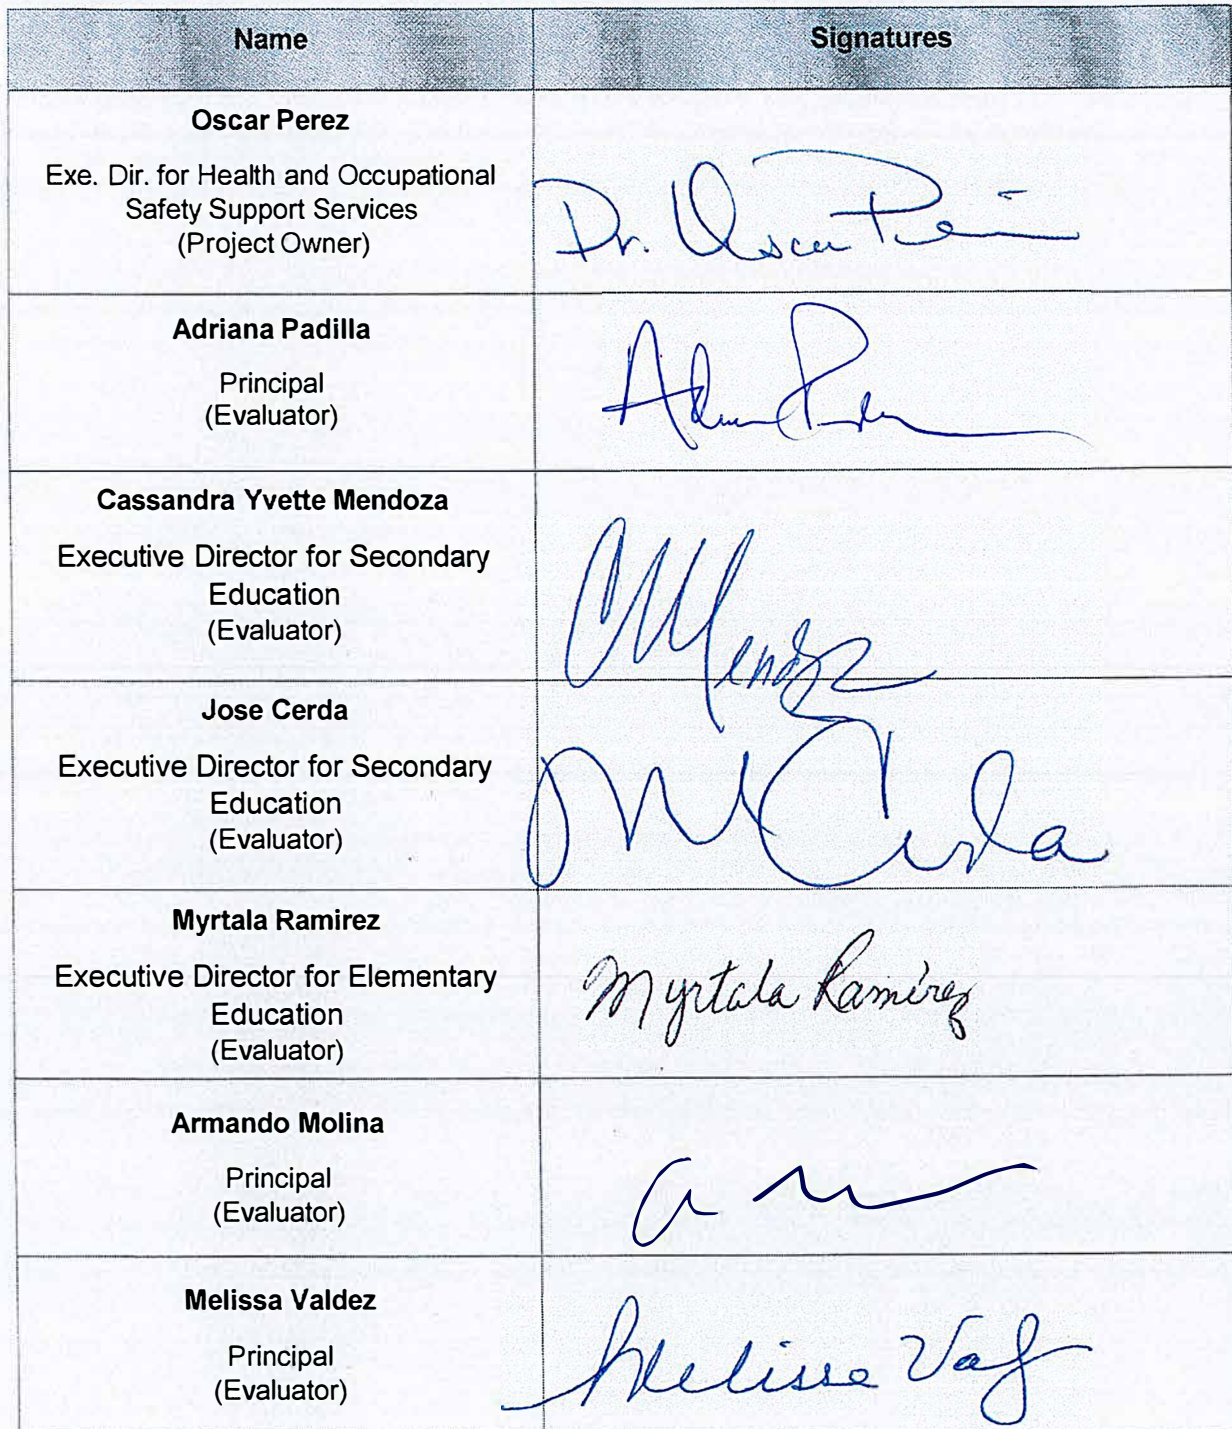 Name
Signatures
Oscar Perez
Exe. Dir. for Health and Occupational
Safety Support Services
(Project Owner)
Dr. Oscar
Adriana Padilla
Principal
(Evaluator)
Cassandra Yvette Mendoza
Executive Director for Secondary
Education
(Evaluator)
CMendoza
Jose Cerda
Executive Director for Secondary
Education
(Evaluator)
Cerda
Myrtala Ramirez
Executive Director for Elementary
Education
(Evaluator)
Myrtala Ramirez
Armando Molina
Principal
(Evaluator)
Melissa Valdez
Principal
(Evaluator)
Melissa